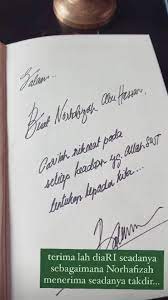 Salam...
Buat Norhafizah Abu Hassan,
Carilah nikmat pada
setiap keadaan yg Allah SWT
tentukan kepada kita...
terima lah diaRI seadanya
sebagaimana Norhafizah
menerima seadanya takdir...